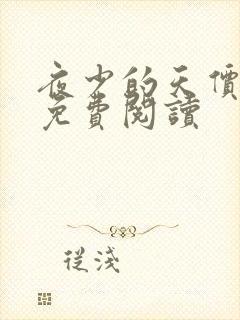 夜少的天價
免費閱讀
從淺